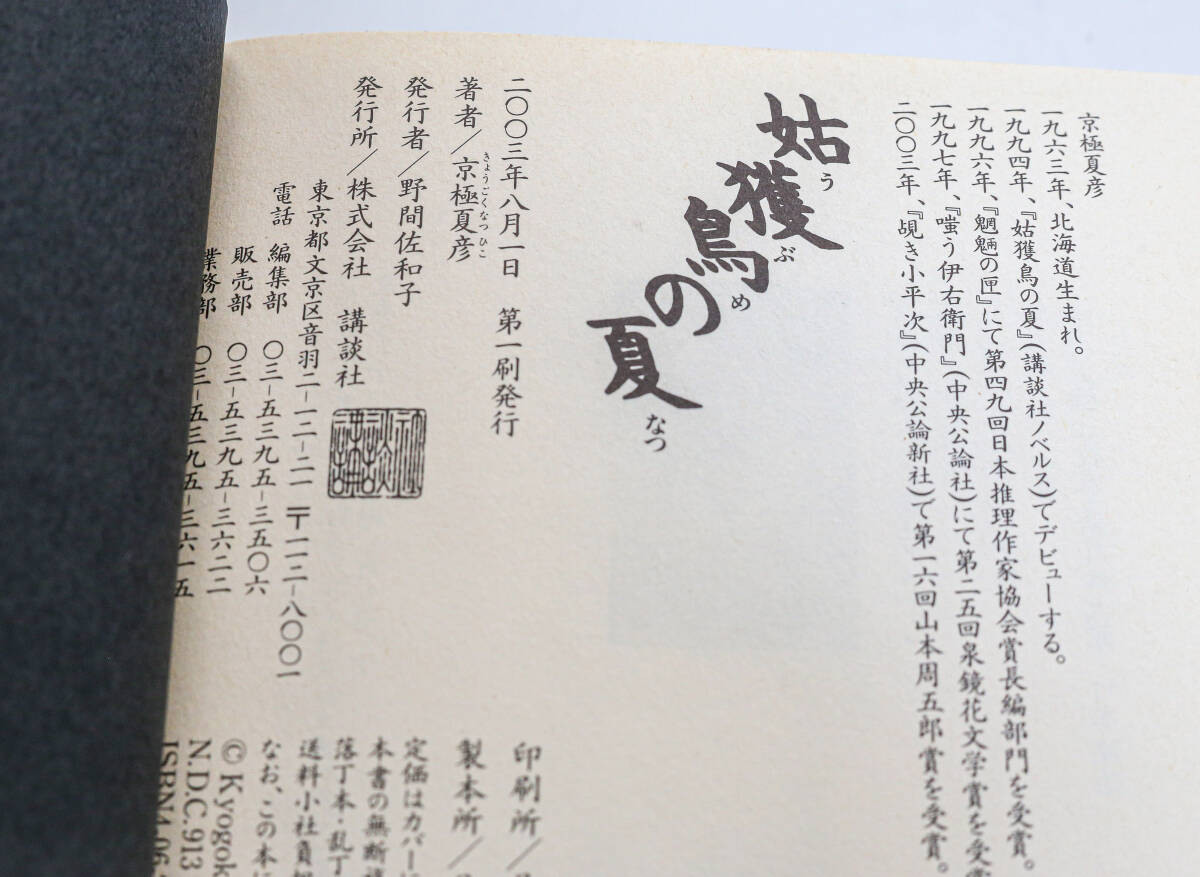 京極夏彦
一九六三年、北海道生まれ。
一九九四年、『姑獲鳥の夏』(講談社ノベルス)でデビューする。
一九九六年、『魍魎の匣』にて第四九回日本推理作家協会賞長編部門を受賞。
一九九七年、『嗤う伊右衛門』(中央公論社)にて第二五回泉鏡花文学賞を受賞
二〇〇三年、『覘き小平次』(中央公論新社)で第一六回山本周五郎賞を受賞。
姑獲鳥の夏
うぶめ なつ
二〇〇三年八月一日 第一刷発行
著者/京極夏彦
きょうごくなつひこ
発行者/野間佐和子
発行所/株式会社 講談社
講談社
東京都文京区音羽二-一二-二一 〒一一二-八〇〇一
電話 編集部 〇三-五三九五-三五〇六
販売部 〇三-五三九五-三六二二
業務部 〇三-五三九五-三六一五
印刷所/
製本所/
定価はカバーに
本書の無断
落丁本・乱丁
送料小社負
なお、この本に
© Kyogok
N.D.C.913
ISBN4-06